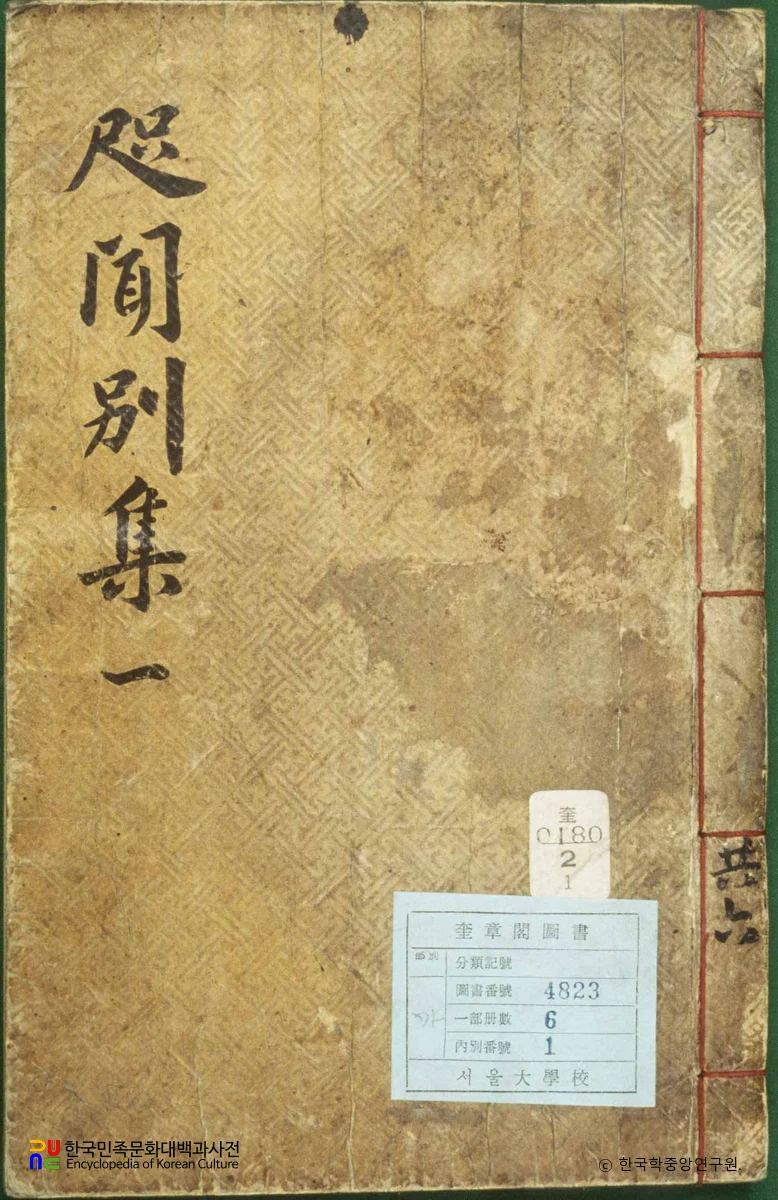 咫聞別集 一
共六
奎
0180
2
1
奎章閣圖書
部別
分類記號
圖書番號 4823
一部册數 6
內別番號 1
서울大學校
한국민족문화대백과사전
Encyclopedia of Korean Culture
© 한국학중앙연구원